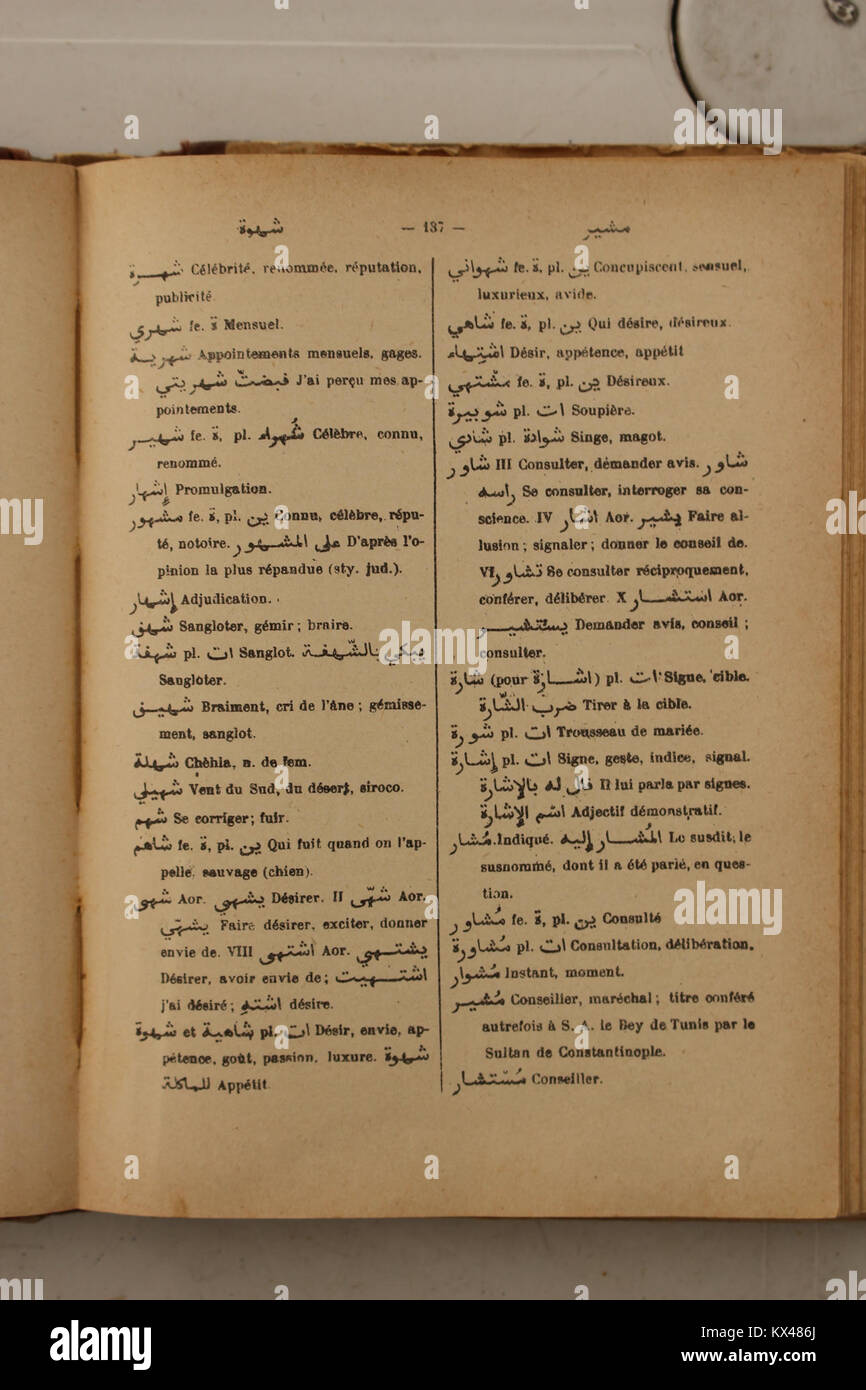 شهوة — 137 — مشير
شهرة Célébrité, renommée, réputation,
publicité
شهري fe. ة Mensuel.
شهرية Appointements mensuels, gages.
قبضتّ شهريتي J'ai perçu mes ap-
pointements.
شهير fe. ة, pl. شُهواء Célèbre, connu,
renommé.
إشهار Promulgation.
مشهور fe. ة, pl. ين Connu, célèbre, répu-
té, notoire. على المشهور D'après l'o-
pinion la plus répandue (sty. jud.).
إشهار Adjudication.
شهق Sangloter, gémir; braire.
شهقة pl. ات Sanglot. يبكي بالشّهقة
Sangloter.
شهيق Braiment, cri de l'âne; gémisse-
ment, sanglot.
شهلة Chèhla, n. de fem.
شهيلي Vent du Sud, du désert, siroco.
شهم Se corriger; fuir.
شاهم fe. ة, pl. ين Qui fuit quand on l'ap-
pelle, sauvage (chien).
شهى Aor. يشهي Désirer. II شهّى Aor.
يشهّي Faire désirer, exciter, donner
envie de. VIII اشتهى Aor. يشتهي
Désirer, avoir envie de; اشتهيت
j'ai désiré; اشته désire.
شهوة et شاهية pl. ات Désir, envie, ap-
pétence, goût, passion, luxure. شهوة
للماكلة Appétit
شهواني fe. ة, pl. ين Concupiscent, sensuel,
luxurieux, avide.
شاهي fe. ة, pl. ين Qui désire, désireux.
اشتهاء Désir, appétence, appétit
مشتهي fe. ة, pl. ين Désireux.
شوبيرة pl. ات Soupière.
شادي pl. شوادة Singe, magot.
شاور III Consulter, demander avis. شاور
راسه Se consulter, interroger sa con-
science. IV اشار Aor. يشير Faire al-
lusion; signaler; donner le conseil de.
VI تشاور Se consulter réciproquement,
conférer, délibérer X استشار Aor.
يستشير Demander avis, conseil;
consulter.
شارة (pour اشارة) pl. ات Signe, cible.
ضرب الشّارة Tirer à la cible.
شورة pl. ات Trousseau de mariée.
إشارة pl. ات Signe, geste, indice, signal.
قال له بالإشارة Il lui parla par signes.
اسم الإشارة Adjectif démonstratif.
مُشار Indiqué. المُشار إليه Le susdit, le
susnommé, dont il a été parlé, en ques-
tion.
مُشاور fe. ة, pl. ين Consulté
مُشاورة pl. ات Consultation, délibération.
مُشوار Instant, moment.
مُشير Conseiller, maréchal; titre conféré
autrefois à S. A. le Bey de Tunis par le
Sultan de Constantinople.
مُستشار Conseiller.
alamy
Image ID: KX486J
www.alamy.com